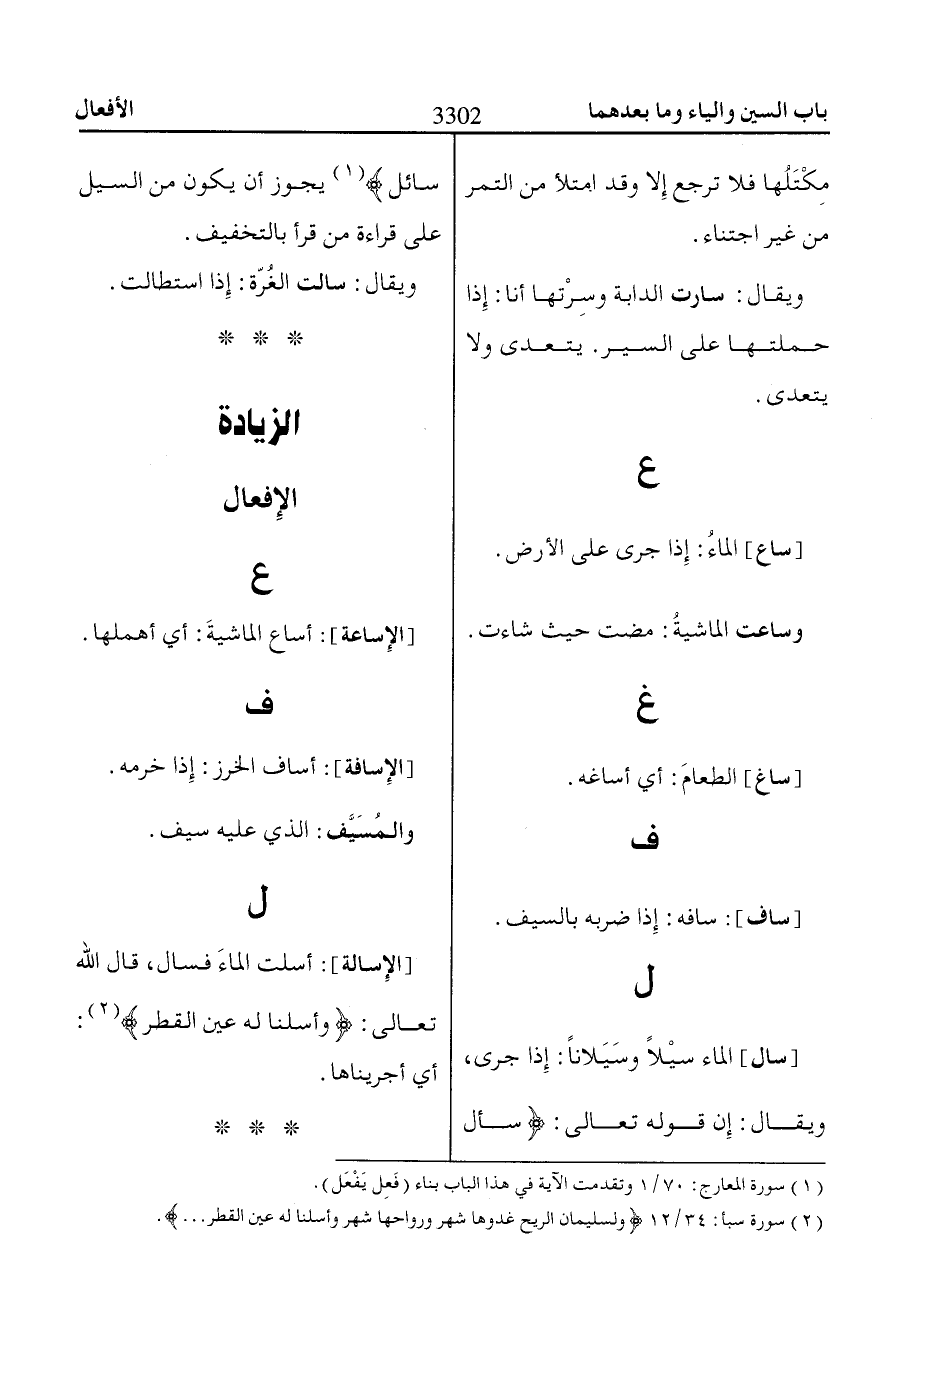 باب السين والياء وما بعدهما
3302
الأفعال
مكْتَلُها فلا ترجع إلا وقد امتلأ من التمر
من غير اجتناء.
ويقال: سارت الدابة وسِرْتها أنا: إذا
حملتها على السير. يتعدى ولا
يتعدى.
ع
[ساع] الماءُ: إذا جرى على الأرض.
وساعت الماشيةُ: مضت حيث شاءت.
غ
[ساغ] الطعامَ: أي أساغه.
ف
[ساف]: سافه: إذا ضربه بالسيف.
ل
[سال] الماء سيْلاً وسَيَلاناً: إذا جرى،
ويقال: إن قوله تعالى: ﴿سأل
سائل﴾(١) يجوز أن يكون من السيل
على قراءة من قرأ بالتخفيف.
ويقال: سالت الغُرّة: إذا استطالت.
* * *
الزيادة
الإفعال
ع
[الإساعة]: أساع الماشيةَ: أي أهملها.
ف
[الإسافة]: أساف الخرز: إذا خرمه.
والمُسَيَّف: الذي عليه سيف.
ل
[الإسالة]: أسلت الماءَ فسال، قال الله
تعالى: ﴿وأسلنا له عين القطر﴾(٢):
أي أجريناها.
* * *
(١) سورة المعارج: ٧٠/ ١ وتقدمت الآية في هذا الباب بناء (فَعِل يَفْعَل).
(٢) سورة سبأ: ٣٤/ ١٢ ﴿ولسليمان الريح غدوها شهر ورواحها شهر وأسلنا له عين القطر...﴾.